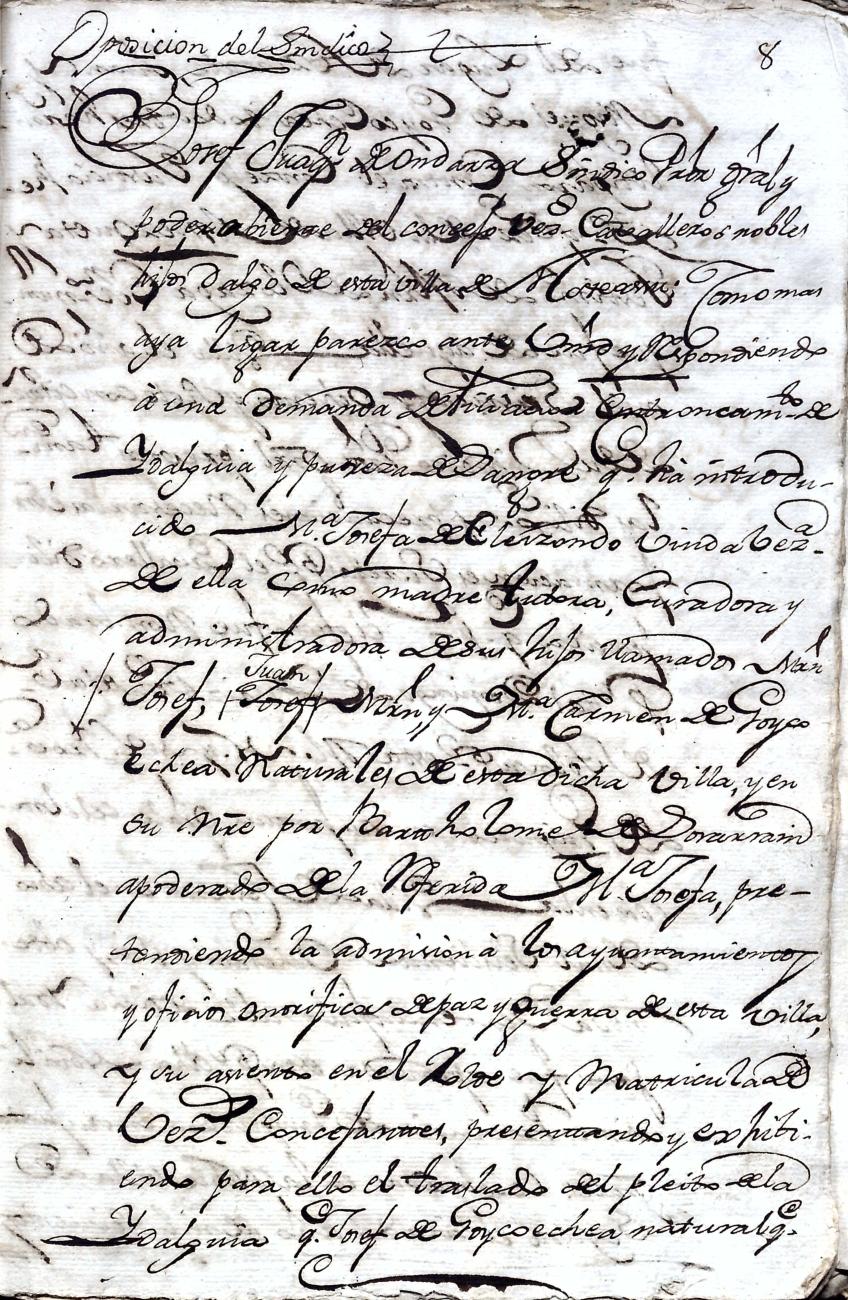 Oposicion del Sindico
8
Josef Juaqn. de Ondarza Sindico Pror. gral y
poder abiente del concejo Vez. Cavalleros nobles
hijos Dalgo de esta villa de Como mas
aya lugar parezco ante Vmd y Respondiendo
à una Demanda de filiacion Entroncamto. de
Ydalguia y pureza de Sangre q. hà introdu-
cido Ma. Josefa de Eleizondo Viuda Veza.
de ella como madre tutora, Curadora y
administradora de sus hijos llamados Mrn
Josef, Juan Josef Mrn, y Ma. Carmen de Goyco
echea Naturales de esta dicha villa, y en
su Nre por Bartholome de Sorarrain
apoderado de la Referida Ma. Josefa, pre-
tendiendo la admision à los ayuntamientos
y oficios onorificos de paz y guerra de esta villa,
y su asiento en el Rolde y Matricula de
Vezs. Concejantes, presentando y exhiti-
endo para ello el traslado del pleito de la
Ydalguia q. Josef de Goycoechea natural q.